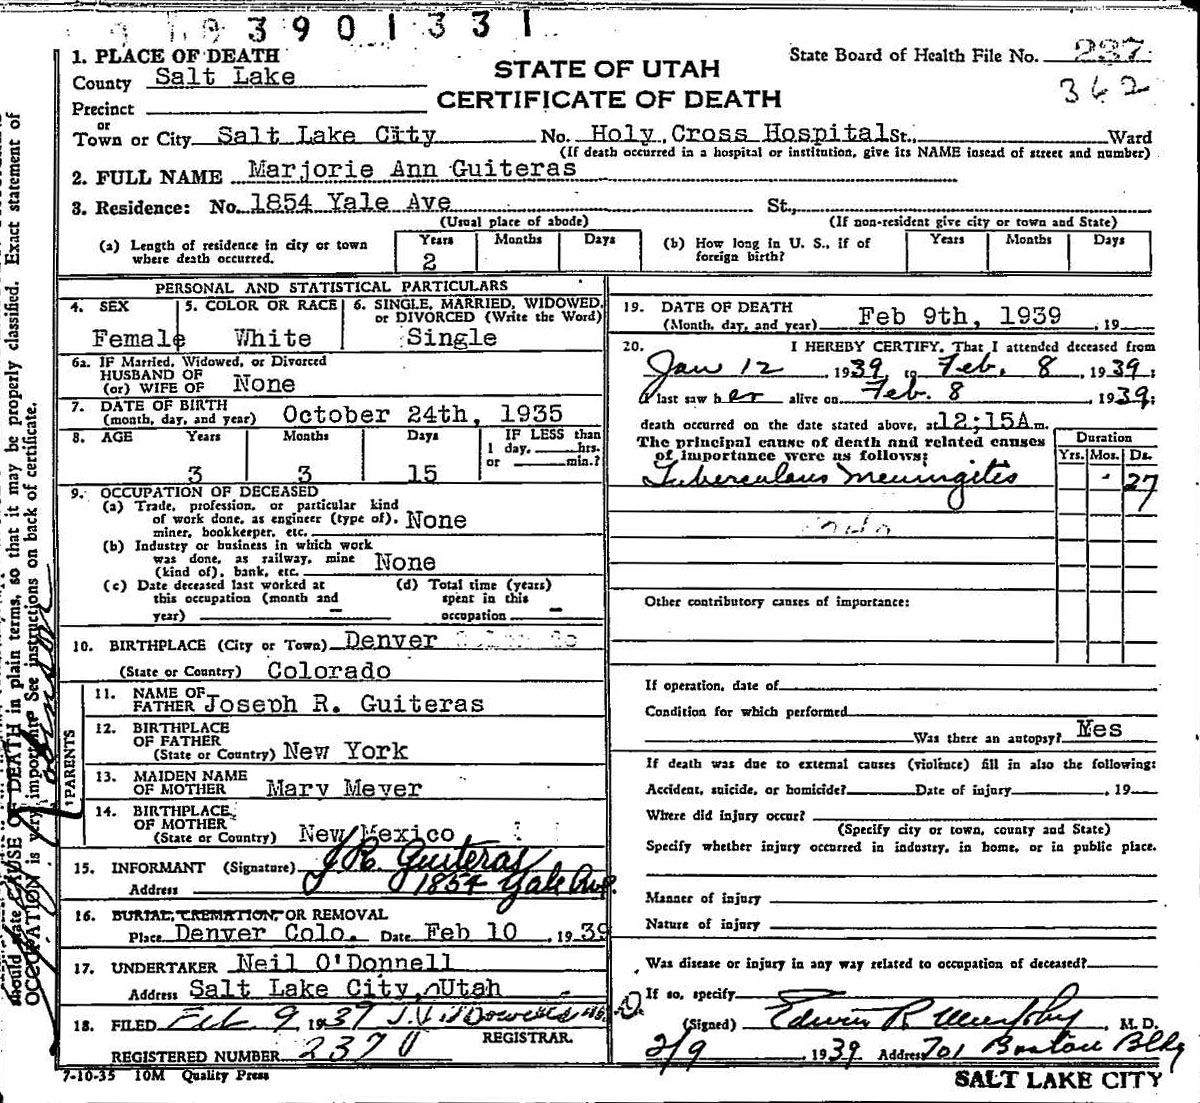 3 9 0 1 3 3 1
1. PLACE OF DEATH
State Board of Health File No. 237
County Salt Lake
STATE OF UTAH
362
Precinct
CERTIFICATE OF DEATH
or
Town or City Salt Lake City No. Holy Cross Hospital St., Ward
(If death occurred in a hospital or institution, give its NAME insead of street and number)
2. FULL NAME Marjorie Ann Guiteras
3. Residence: No. 1854 Yale Ave St.,
(Usual place of abode) (If non-resident give city or town and State)
(a) Length of residence in city or town where death occurred. Years 2 Months Days
(b) How long in U. S., if of foreign birth? Years Months Days
PERSONAL AND STATISTICAL PARTICULARS
4. SEX 5. COLOR OR RACE 6. SINGLE, MARRIED, WIDOWED, or DIVORCED (Write the Word)
Female White Single
6a. IF Married, Widowed, or Divorced
HUSBAND OF
(or) WIFE OF None
7. DATE OF BIRTH
(month, day, and year) October 24th, 1935
8. AGE Years Months Days IF LESS than
1 day, hrs.
or min.?
3 3 15
9. OCCUPATION OF DECEASED
(a) Trade, profession, or particular kind
of work done, as engineer (type of), None
miner, bookkeeper, etc.
(b) Industry or business in which work
was done, as railway, mine None
(kind of), bank, etc.
(c) Date deceased last worked at this occupation (month and year) –
(d) Total time (years) spent in this occupation –
10. BIRTHPLACE (City or Town) Denver
(State or Country) Colorado
PARENTS
11. NAME OF
FATHER Joseph R. Guiteras
12. BIRTHPLACE
OF FATHER
(State or Country) New York
13. MAIDEN NAME
OF MOTHER Mary Meyer
14. BIRTHPLACE
OF MOTHER
(State or Country) New Mexico
15. INFORMANT (Signature) J. R. Guiteras
Address 1854 Yale Ave.
16. BURIAL, CREMATION, OR REMOVAL
Place Denver Colo. Date Feb 10, 1939
17. UNDERTAKER Neil O'Donnell
Address Salt Lake City, Utah
18. FILED Feb. 9 1939
REGISTRAR.
REGISTERED NUMBER 237
7-10-35 10M Quality Press
19. DATE OF DEATH
(Month, day, and year) Feb 9th, 1939, 19
20. I HEREBY CERTIFY, That I attended deceased from
Jan 12, 1939, to Feb. 8, 1939;
I last saw her alive on Feb. 8, 1939;
death occurred on the date stated above, at 12;15A m.
The principal cause of death and related causes
of importance were as follows:
Duration
Yrs. Mos. Ds.
Tuberculous Meningitis - 27
Other contributory causes of importance:
If operation, date of
Condition for which performed
Was there an autopsy? Yes
If death was due to external causes (violence) fill in also the following:
Accident, suicide, or homicide? Date of injury, 19
Where did injury occur?
(Specify city or town, county and State)
Specify whether injury occurred in industry, in home, or in public place.
Manner of injury
Nature of injury
Was disease or injury in any way related to occupation of deceased?
If so, specify
(Signed) Edwin R. Murphy, M. D.
2/9, 1939 Address 701 Boston Bldg
SALT LAKE CITY
should state CAUSE OF DEATH in plain terms, so that it may be properly classified. Exact statement of
OCCUPATION is very important. See instructions on back of certificate.